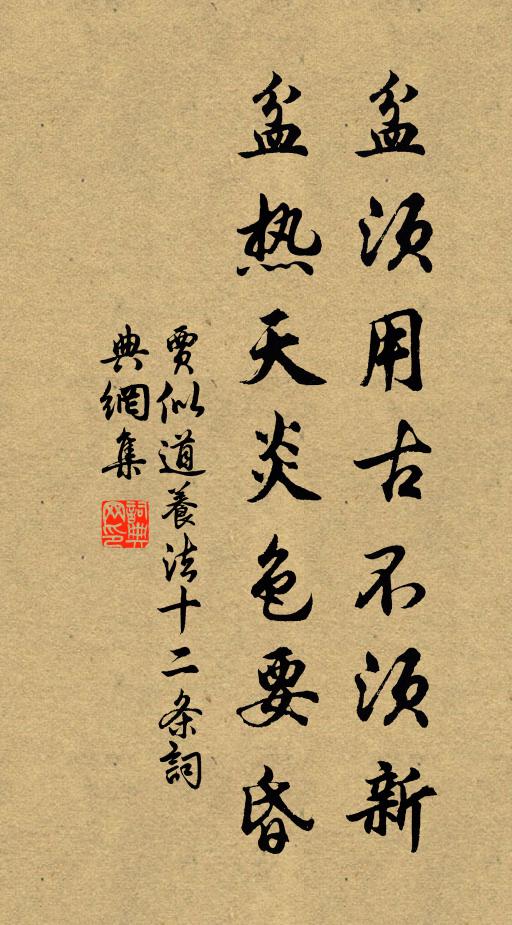 盆须用古不须新
盆热天炎色要昏
賈似道養法十二条詞
典網集
詞典网印